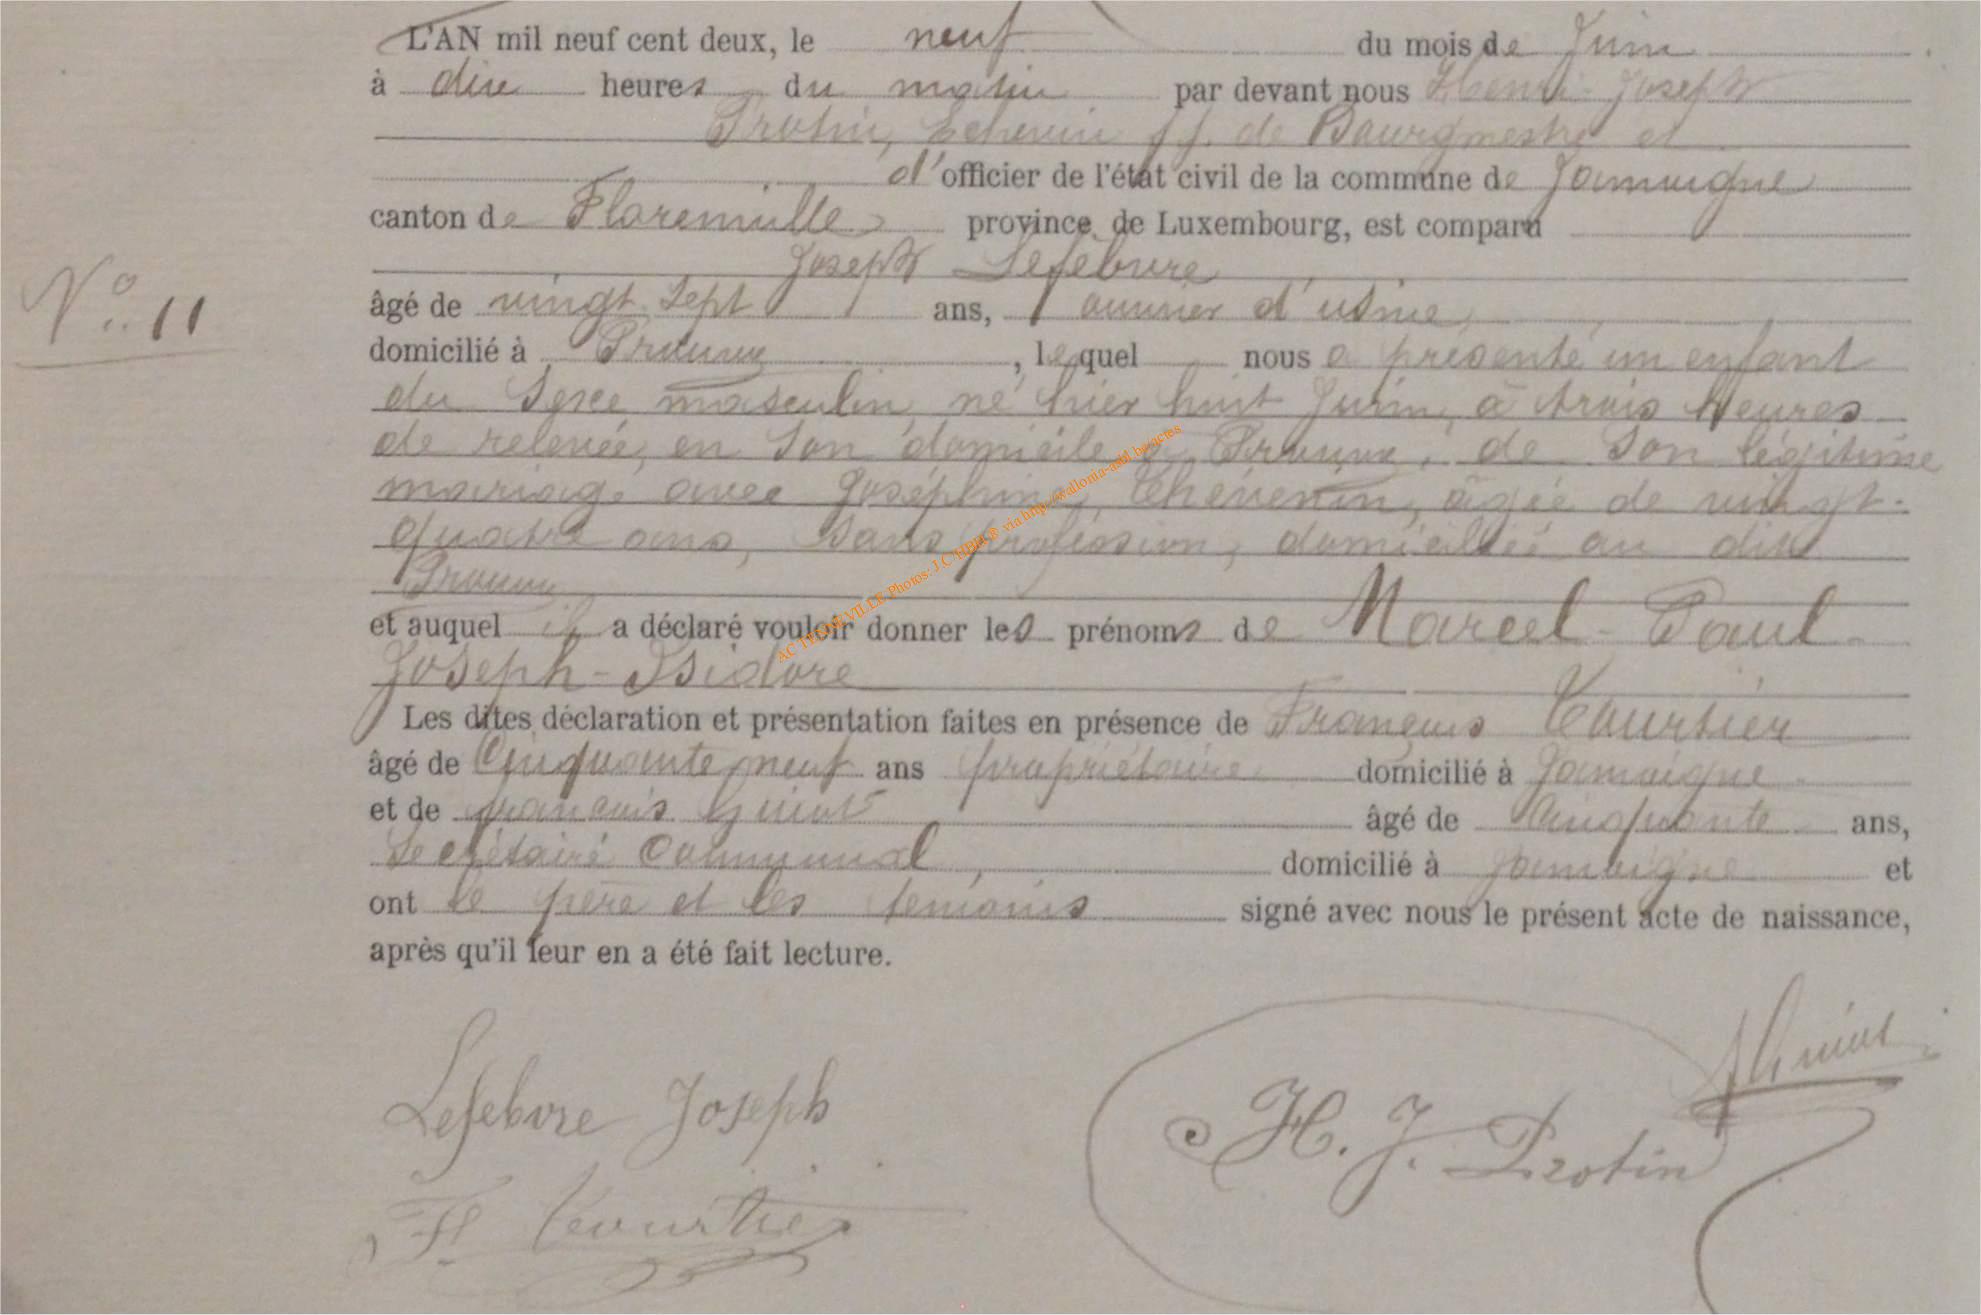 L'AN mil neuf cent deux, le neuf du mois de Juin
à dix heures du matin par devant nous Henri-Joseph
Protin, Echevin ff. de Bourgmestre et
d'officier de l'état civil de la commune de Jamoigne
canton de Florenville, province de Luxembourg, est comparu
Joseph Lefebvre
âgé de vingt sept ans, ouvrier d'usine,
domicilié à Prouvy, lequel nous a présenté un enfant
N° 11
du sexe masculin, né hier huit Juin, à trois heures
de relevée, en son domicile à Prouvy, de son légitime
mariage avec Joséphine Thévenin, âgée de vingt-
quatre ans, sans profession, domiciliée au dit
Prouvy
et auquel il a déclaré vouloir donner les prénoms de Marcel-Paul-
Joseph-Isidore
Les dites déclaration et présentation faites en présence de François Courtier
âgé de Cinquante neuf ans propriétaire domicilié à Jamoigne
et de François âgé de Cinquante ans,
Secrétaire Communal, domicilié à Jamoigne et
ont le père et les témoins signé avec nous le présent acte de naissance,
après qu'il leur en a été fait lecture.
Lefebvre Joseph
H. J. Protin
F. Courtier
AC TENNEVILLE Photos: J.C. via http://wallonia-asbl.be/actes